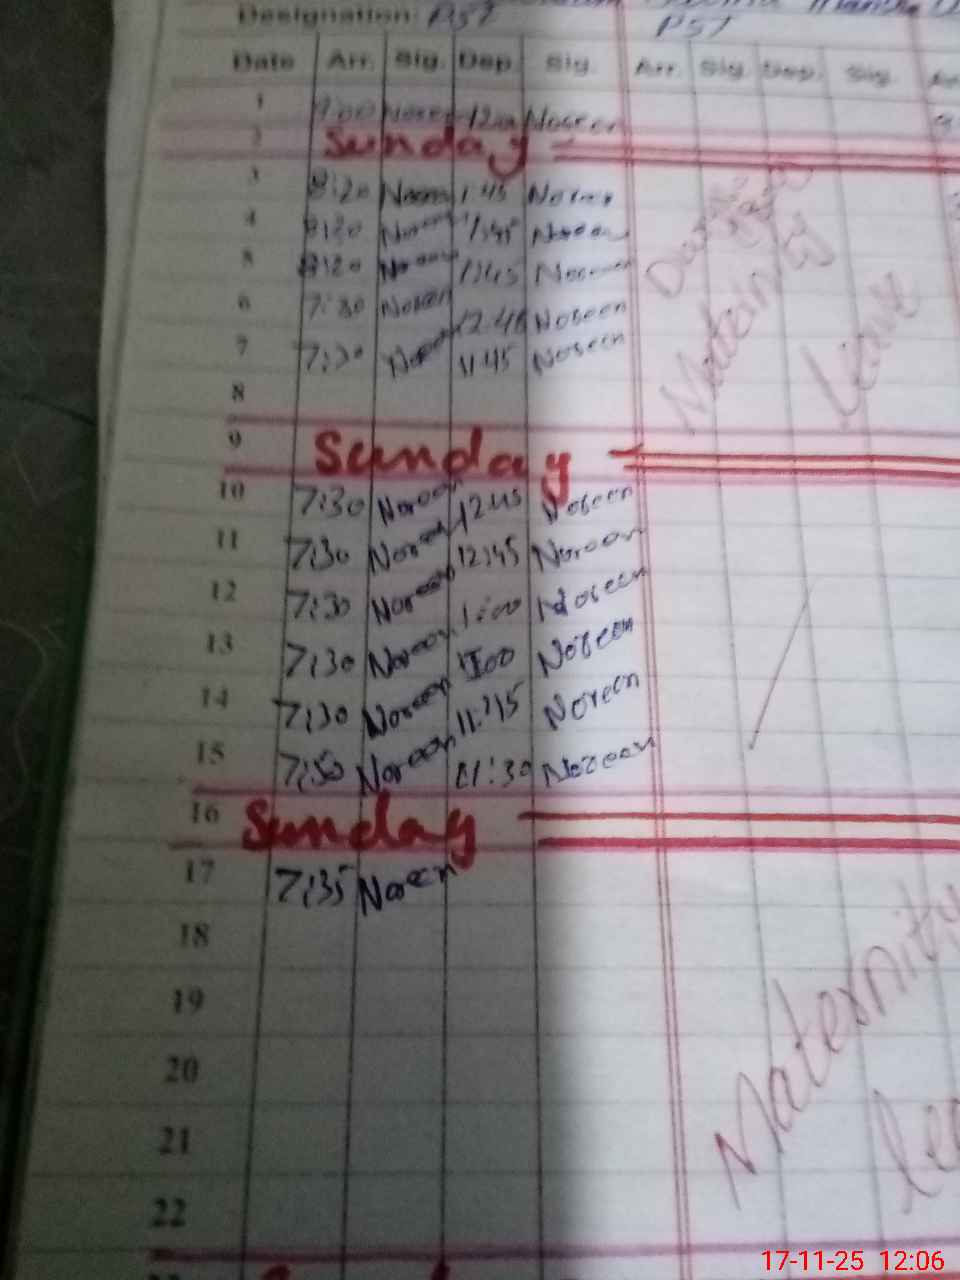 Designation: PST PST
Date Arr. Sig. Dep. Sig. Arr. Sig. Dep. Sig.
1 9:00 Noreen 12:00 Noreen
2 Sunday
3 8:20 Noreen 1:45 Noreen
4 8:20 Noreen 1:45 Noreen
5 8:20 Noreen 1:45 Noreen
6 7:30 Noreen 12:45 Noreen
7 7:30 Noreen 11:45 Noreen
Maternity
Leave
8
9 Sunday
10 7:30 Noreen 12:45 Noreen
11 7:30 Noreen 12:45 Noreen
12 7:30 Noreen 1:00 Noreen
13 7:30 Noreen 1:00 Noreen
14 7:30 Noreen Noreen
15 Noreen 11:30 Noreen
16 Sunday
17 7:35 Noreen
18
19
20
21
Maternity
22
17-11-25 12:06